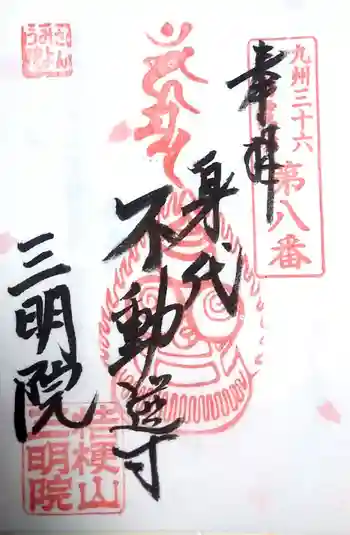 奉拝
九州三十六
第八番
身代
不動尊
三明院
桔梗山
三明院
さん
みよ
う院